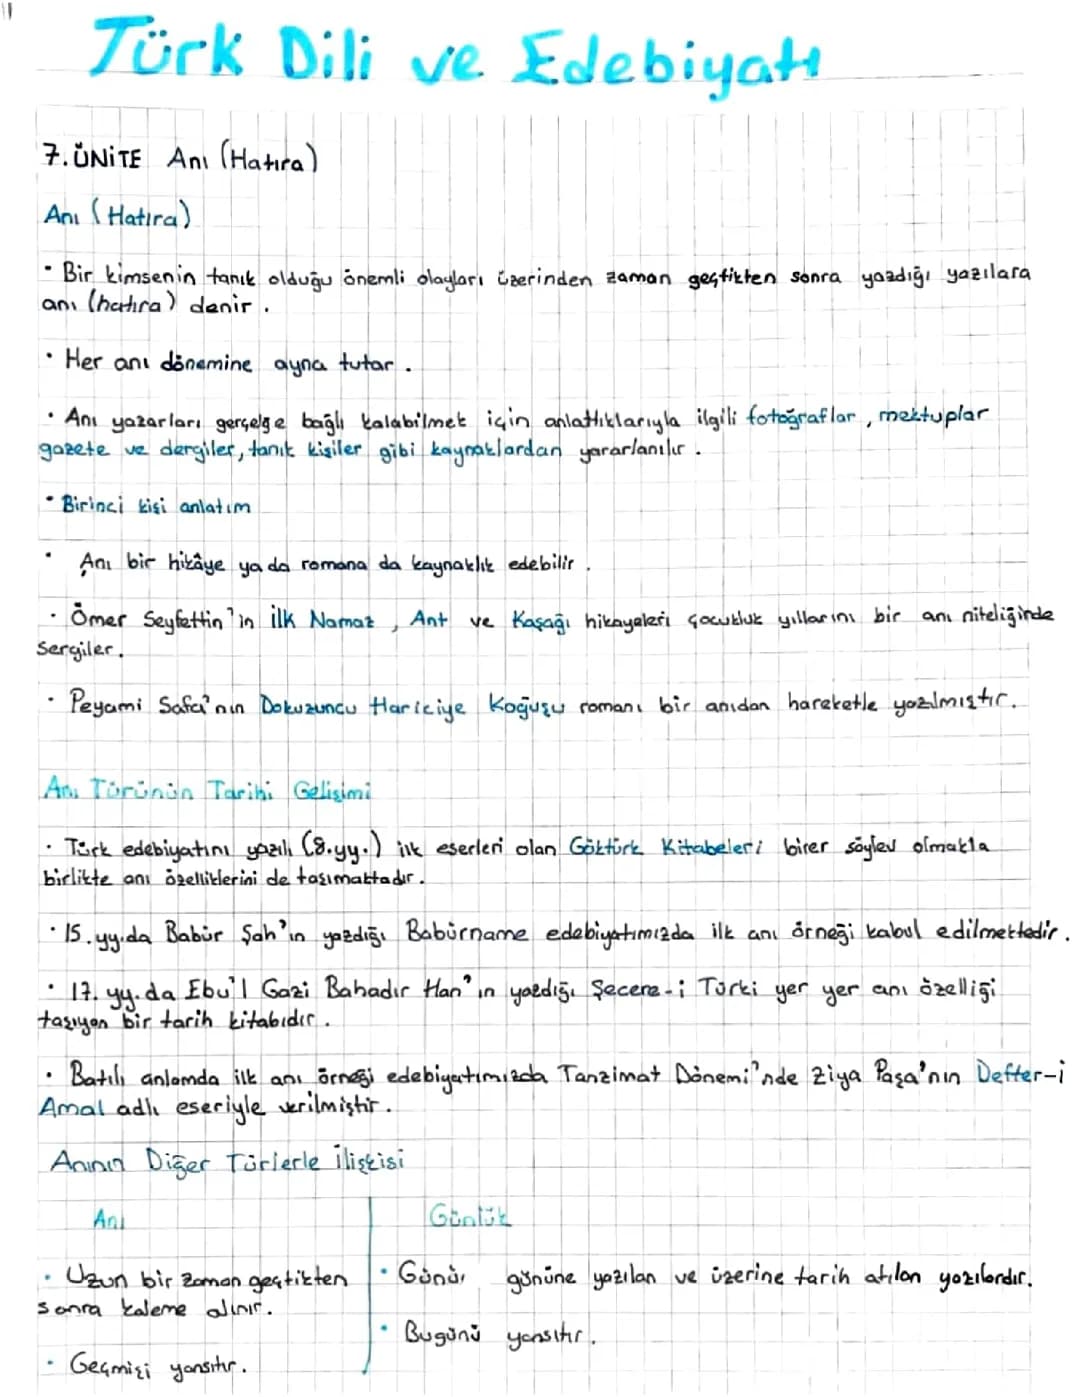 Türk Dili ve Edebiyatı
7. ÜNİTE Anı (Hatıra)
Anı (Hatıra)
• Bir kimsenin tanık olduğu önemli olayları üzerinden zaman geçtikten sonra yazdığı yazılara
anı (hatıra) denir.
• Her anı dönemine ayna tutar.
• Anı yazarları gerçeğe bağlı kalabilmek için anlattıklarıyla ilgili fotoğraflar, mektuplar
gazete ve dergiler, tanık kişiler gibi kaynaklardan yararlanılır.
• Birinci kişi anlatım
• Anı bir hikâye ya da romana da kaynaklık edebilir.
• Ömer Seyfettin'in İlk Namaz, Ant ve Kaşağı hikayeleri çocukluk yıllarını bir anı niteliğinde
sergiler.
• Peyami Safa'nın Dokuzuncu Hariciye Koğuşu romanı bir anıdan hareketle yazılmıştır.
Anı Türünün Tarihi Gelişimi
• Türk edebiyatını yazılı (8.yy.) ilk eserleri olan Göktürk Kitabeleri birer söylev olmakla
birlikte anı özelliklerini de taşımaktadır.
• 15. yy.da Babür Şah'ın yazdığı Babürname edebiyatımızda ilk anı örneği kabul edilmektedir.
• 17. yy.da Ebu'l Gazi Bahadır Han'ın yazdığı Şecere-i Türki yer yer anı özelliği
taşıyan bir tarih kitabıdır.
• Batılı anlamda ilk anı örneği edebiyatımızda Tanzimat Dönemi'nde Ziya Paşa'nın Defter-i
Amal adlı eseriyle verilmiştir.
Anının Diğer Türlerle İlişkisi
Anı
• Uzun bir zaman geçtikten
sonra kaleme alınır.
• Geçmişi yansıtır.
Günlük
• Günü gününe yazılan ve üzerine tarih atılan yazılardır.
• Bugünü yansıtır.